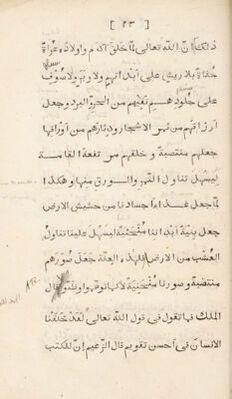 [ ٢٣ ]
ذلك ان الله تعالى لما خلق آدم واولاده عراة
حفاة بلا ريش على ابدانهم ولا وبر ولا صوف
على جلودهم يقيهم من الحر والبرد وجعل
ارزاقهم من ثمر الاشجار ودثارهم من اوراقها
جعلهم منتصبة وخلقهم مرتفعة القامة
ليسهل تناول الثمر والورق منها وهكذا
لما جعل غذاء اجسادنا من حشيش الارض
جعل بنية ابداننا منحنية ليسهل علينا تناول
العشب من الارض فلهذه العلة جعل صورهم
منتصبة وصورنا منحنية لا كما توهموا قال
الملك فما تقول في قول الله تعالى لقد خلقنا
الانسان في احسن تقويم قال الزعيم ان للكتب